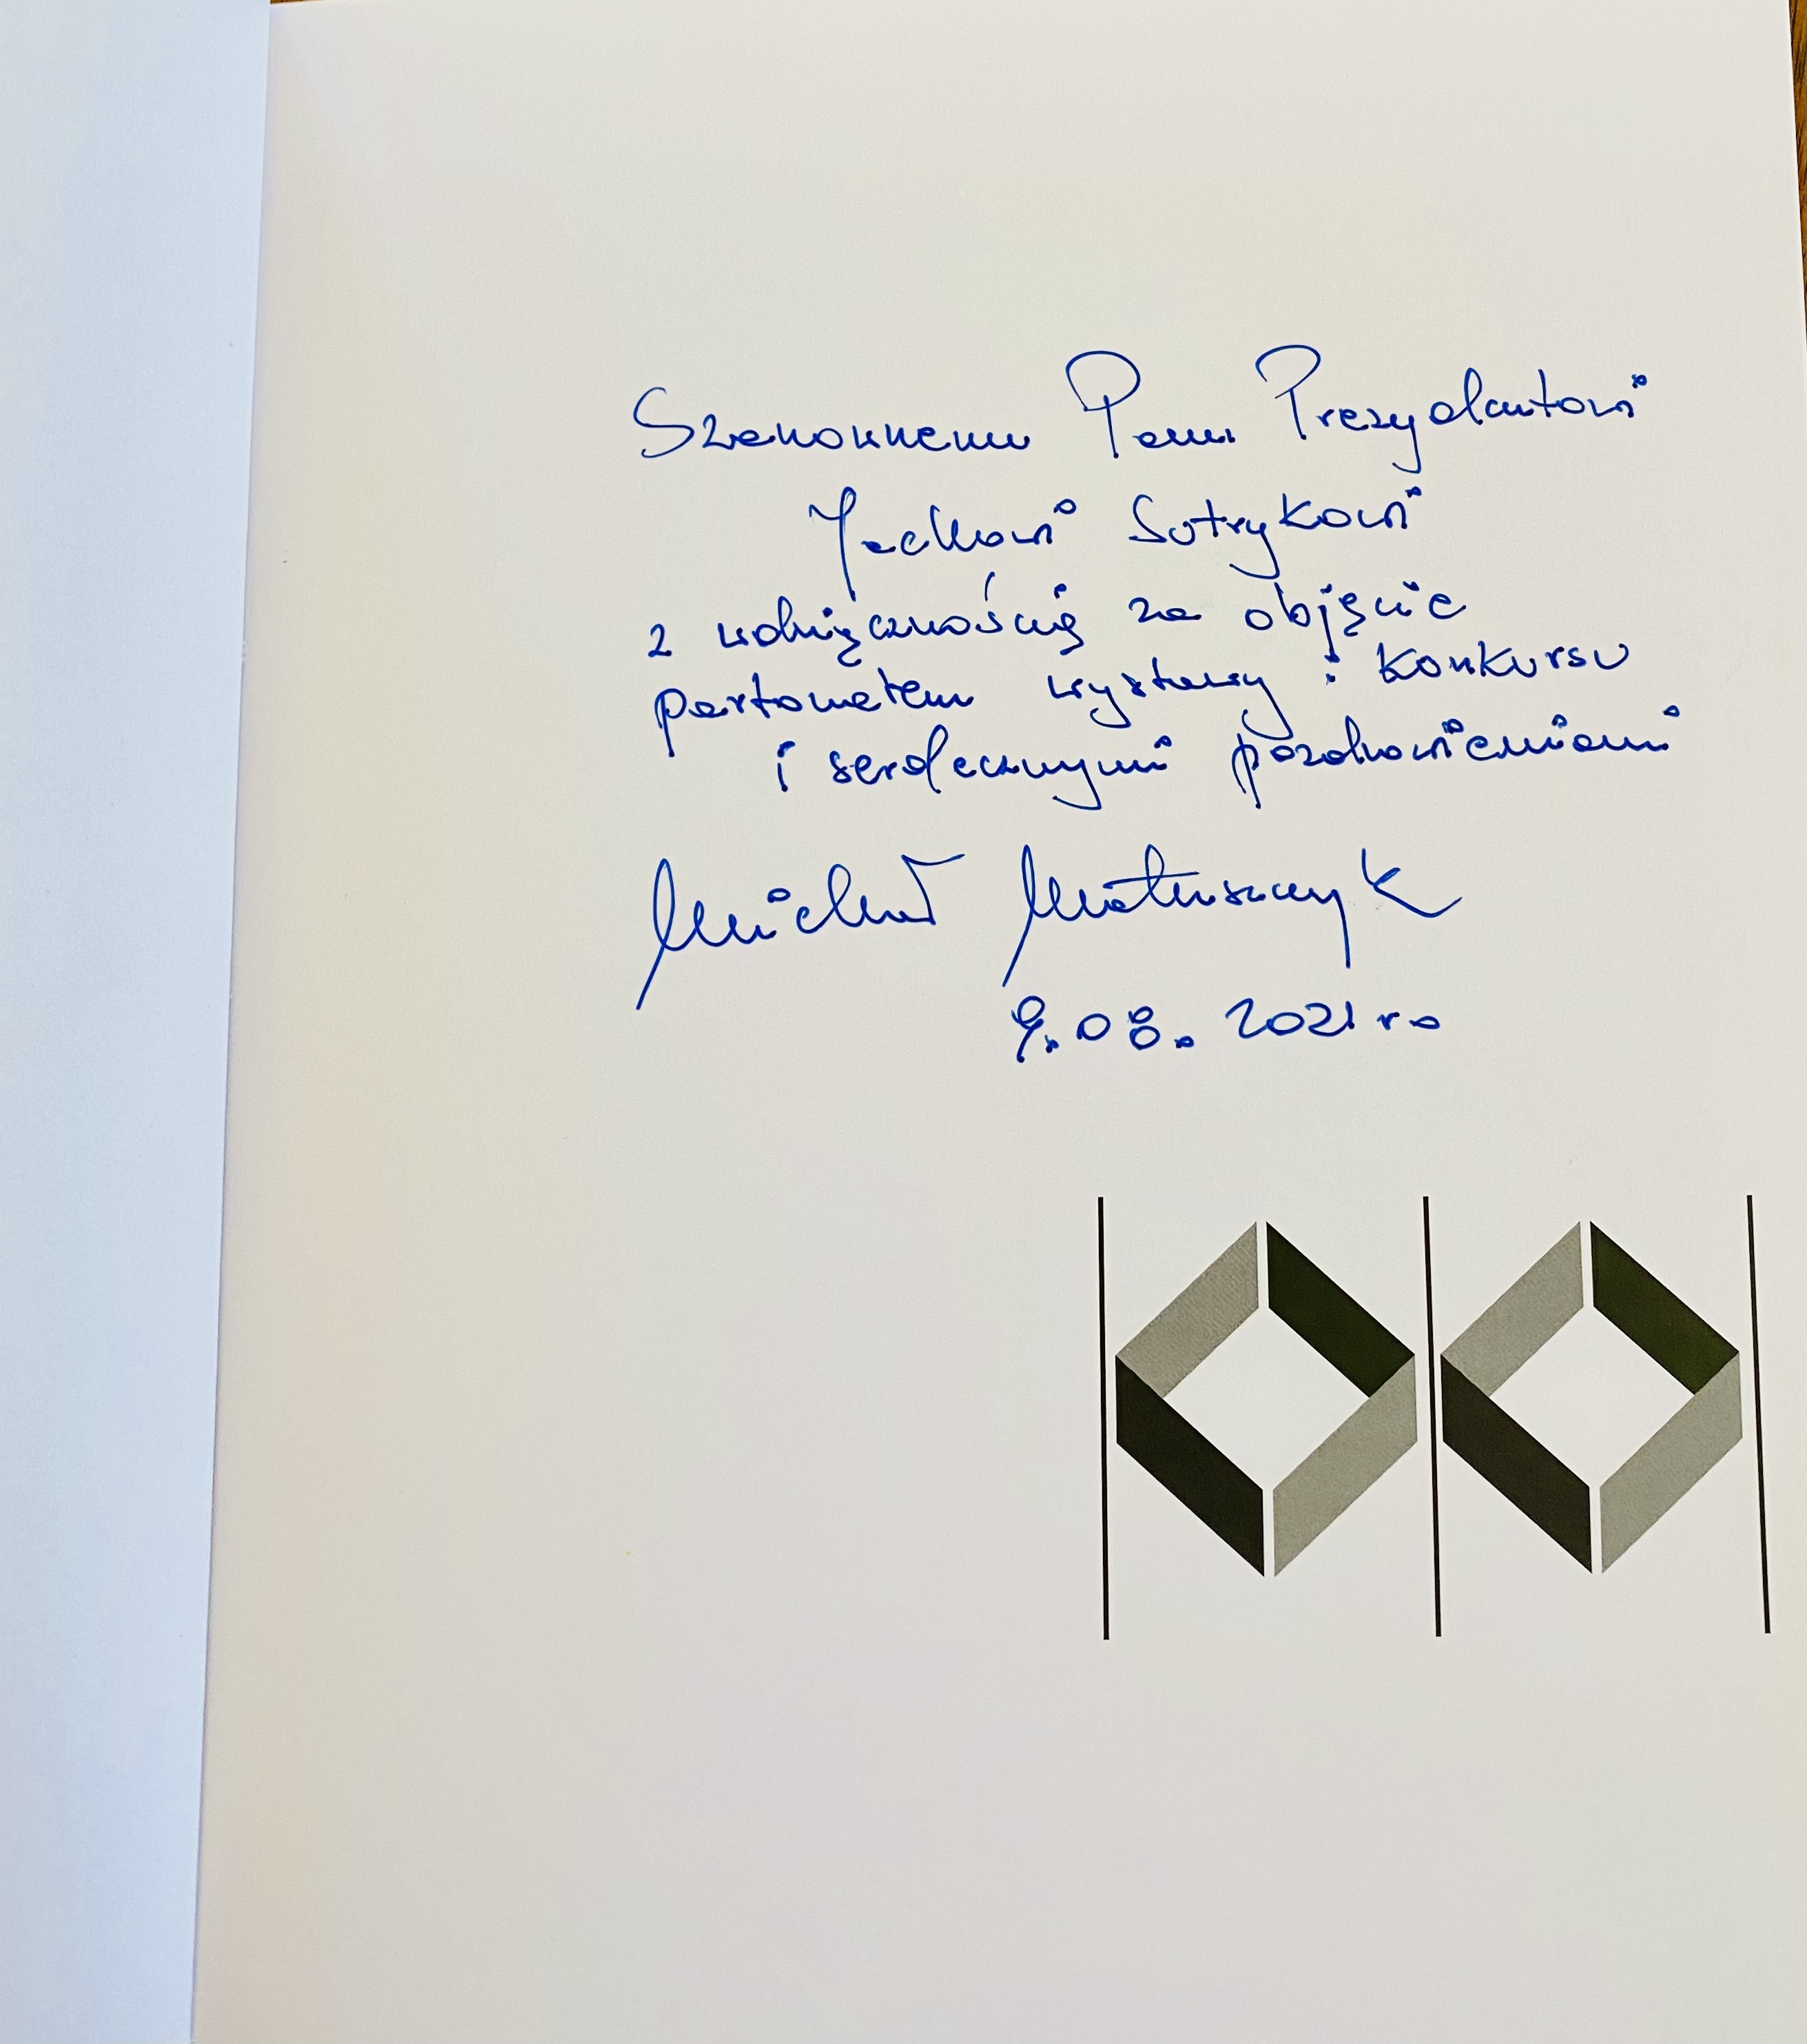 Szanownemu Panu Prezydentowi
Jackowi Sutrykowi
z wdzięcznością za objęcie
partonatem wystawy i konkursu
i serdecznymi pozdrowieniami
Michał Matuszczyk
9.08.2021 r.